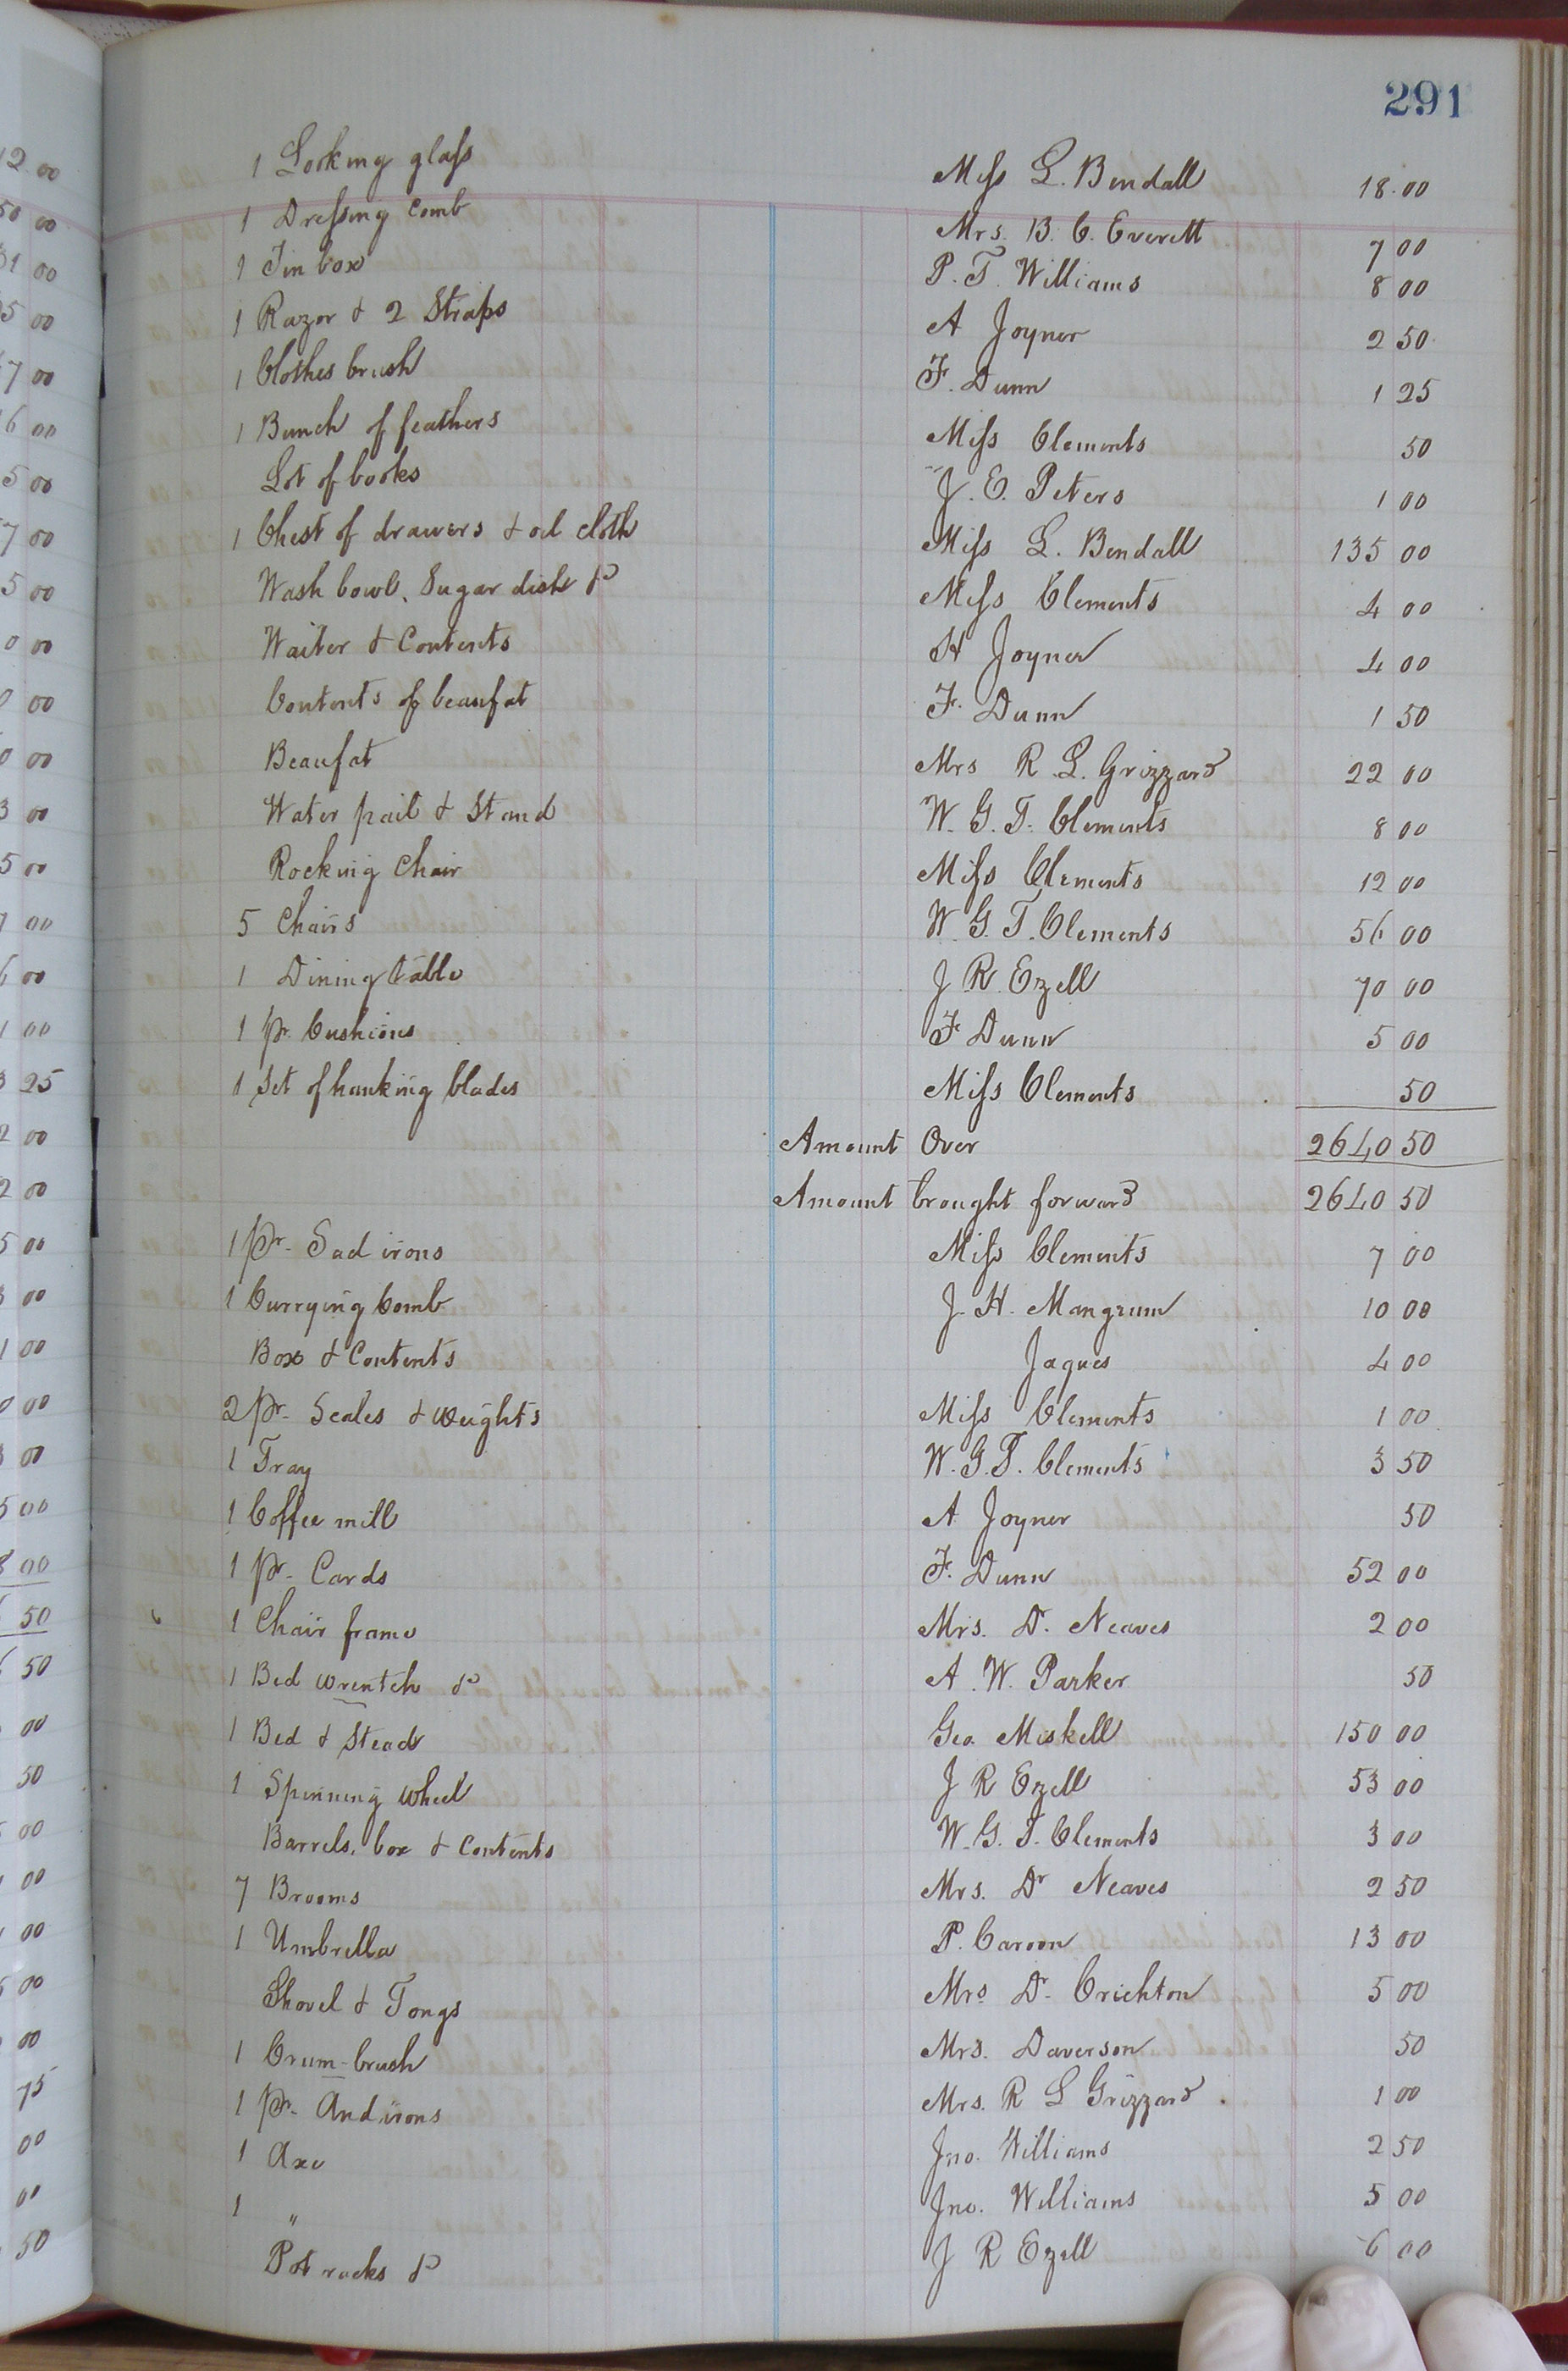 291
1 Looking glass Miss L. Bendall 18.00
1 Dressing comb Mrs. B. C. Everett 7 00
1 Tin box P. T. Williams 8 00
1 Razor & 2 Straps A Joyner 2 50
1 Clothes brush F. Dunn 1 25
1 Bunch of feathers Miss Clements 50
Lot of books J. E. Peters 1 00
1 Chest of drawers & oil cloth Miss L. Bendall 135 00
Wash bowl, Sugar dish & Miss Clements 4 00
Waiter & Contents H Joyner 4 00
Contents of beaufat F. Dunn 1 50
Beaufat Mrs R. L. Grizzard 22 00
Water pail & Stand W. G. T. Clements 8 00
Rocking Chair Miss Clements 12 00
5 Chairs W. G. T. Clements 56 00
1 Dining table J R. Ezell 70 00
1 Pr. Cushions F Dunn 5 00
1 Set of hanking blades Miss Clements 50
Amount Over 2640 50
Amount brought forward 2640 50
1 Pr. Sad irons Miss Clements 7 00
1 Currying Comb J. H. Mangrum 10 00
Box & Contents Jaques 4 00
2 Pr. Scales & weights Miss Clements 1 00
1 Tray W. G. T. Clements 3 50
1 Coffee mill A Joyner 50
1 Pr. Cards F. Dunn 52 00
1 Chair frame Mrs. Dr. Neaves 2 00
1 Bed wrentch & A. W. Parker 50
1 Bed & Stead Geo. Miskell 150 00
1 Spinning wheel J R Ezell 53 00
Barrels, box & Contents W. G. T. Clements 3 00
7 Brooms Mrs. Dr Neaves 2 50
1 Umbrella P. 13 00
Shovel & Tongs Mrs Dr. Crichton 5 00
1 Crum-brush Mrs. Daverson 50
1 Pr. Andirons Mrs. R L Grizzard 1 00
1 Axe Jno. Williams 2 50
1 " Jno. Williams 5 00
Pot racks & J R Ezell 6 00
12 00
50 00
31 00
5 00
7 00
6 00
5 00
7 00
5 00
0 00
00
00
3 00
5 00
00
6 00
00
3 25
2 00
2 00
5 00
00
00
00
00
5 00
8 00
50
50
00
50
00
00
00
00
00
75
00
00
50